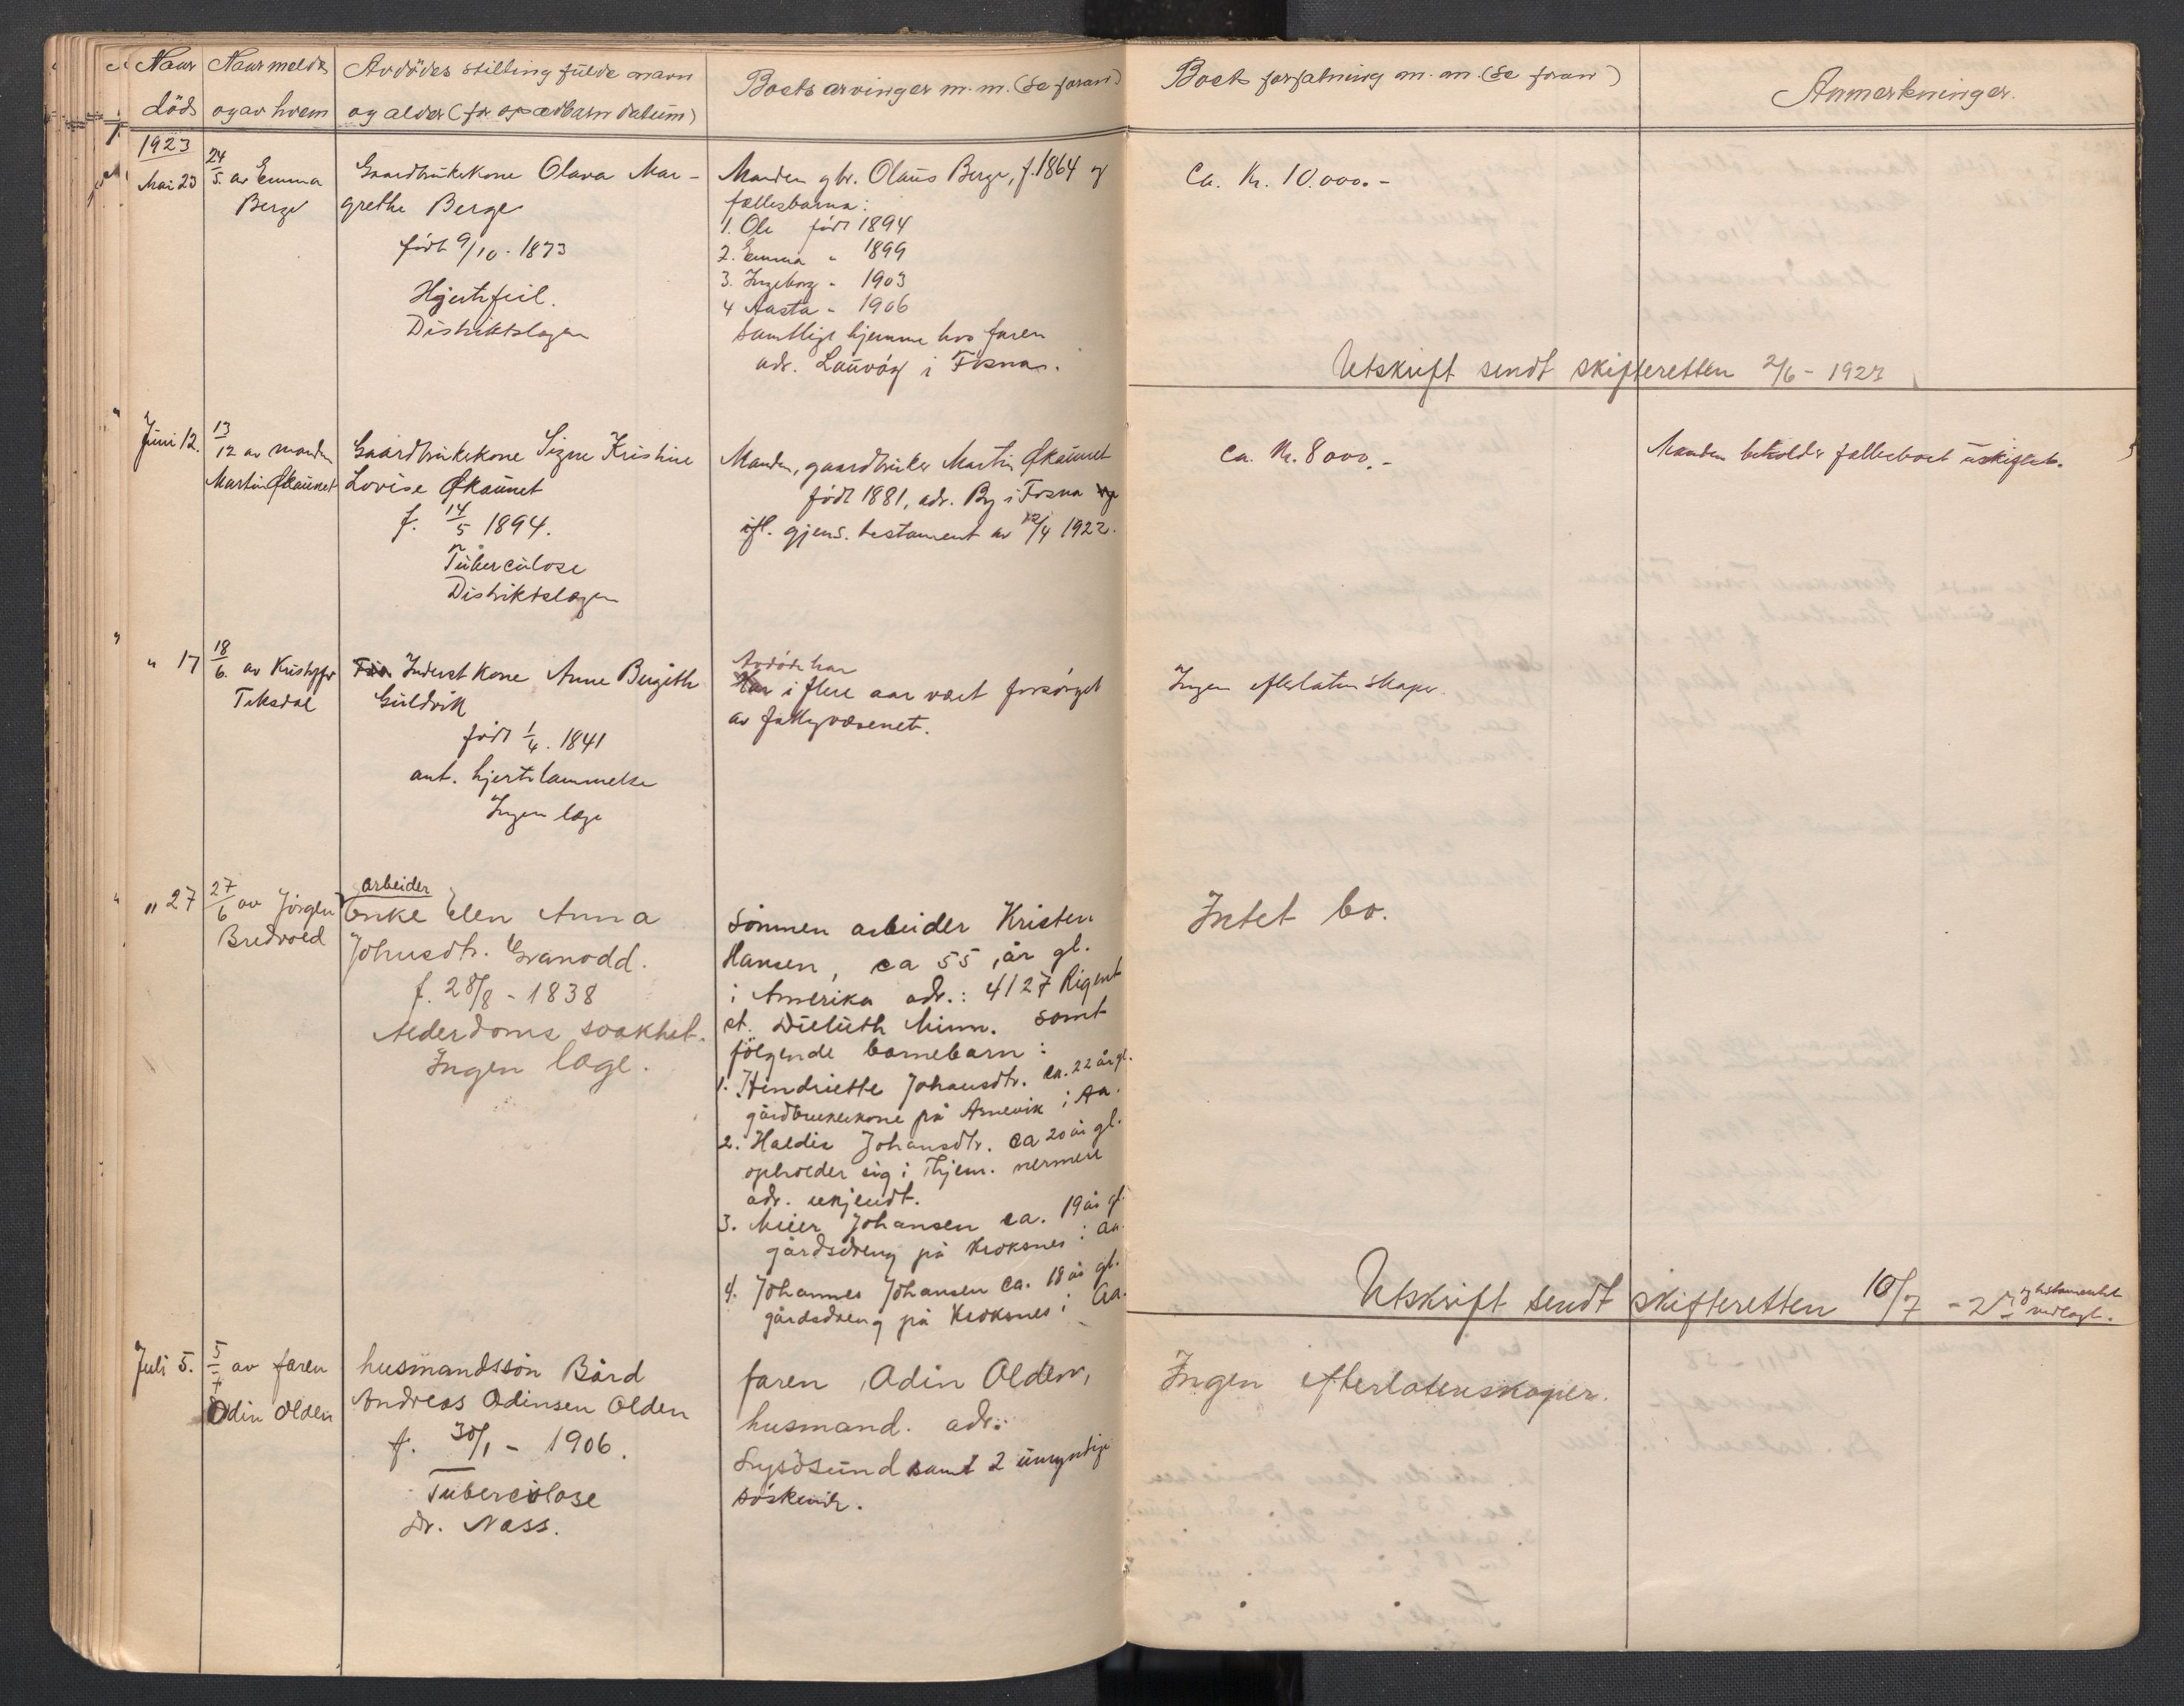 Naar
død
Naar meldt
og av hvem
Avdødes stilling fulde navn
og alder (for spædbarn datum)
Boets arvinger m. m. (Se foran)
Boets forfatning m. m. (Se foran)
Anmerkninger.
1923
Mai 23
24/5. av Emma
Berge
Gaardbrukekone Olava Mar-
grethe Berge
født 9/10. 1873
Hjertefeil.
Distriktslægen
Manden gbr. Olaus Berge, f. 1864 og
fællesbarna:
1. Ole født 1894
2. Emma " 1899
3. Ingeborg " 1903
4 Aasta " 1906
samtlige hjemme hos faren
adr. Lauvøy i Fosna.
Ca. Kr. 10.000.-
Utskrift sendt skifteretten 2/6 - 1923
Juni 12.
13/12 av manden
Martin Økaunet
Gaardbrukekone Signe Kristine
Lovise Økaunet
f. 14/5 1894.
Tuberculose
Distriktslægen
Manden, gaardbruker Martin Økaunet
født 1881, adr. By i Fosna
ifl. gjens. testament av 12/4 1922.
Ca. Kr. 8000.-
Manden beholder fællesboet uskiftet.
" 17
18/6. av Kristoffer
Teksdal
Inderst kone Anne Bergith
Guldvik
født 1/4. 1841
ant. hjertelammelse
Ingen læge
Avdøde har
i flere aar vært forsørget
av fattigvæsenet.
Ingen efterlatenskaper.
" 27
27/6 av Jörgen
Bredvold
arbeider
Enke Elen Anna
Johnsdtr. Granodd.
f. 28/8 - 1838
Alderdoms svakhet.
Ingen læge.
Sönnen arbeider Kristen
Hansen, ca 55 år gl.
i Amerika adr.: 4127 Rigent
st. Duluth Minn. samt
fölgende barnebarn:
1. Hendriette Johansdtr. ca. 22 år gl.
gårdbrukerkone på Arnevik i Aa.
2. Haldis Johansdtr. ca 20 år gl.
opholder sig i Thjem. nermere
adr. ukjendt.
3. Meier Johansen ca. 19 år gl
gårdsdreng på Kroksnes i Aa.
4. Johannes Johansen ca. 18 år gl.
gårdsdreng på Kroksnes i Aa.
Intet bo.
Utskrift sendt skifteretten 10/7 - 23 og testamentet
vedlagt.
Juli 5.
5/7 av faren
Odin Olden
husmandssön Bård
Andreas Odinsen Olden
f. 30/1 - 1906.
Tuberculose
Dr. Næss.
faren, Odin Olden,
husmand. adr:
Lysösund samt 2 umyndige
söskende.
Ingen efterlatenskaper.